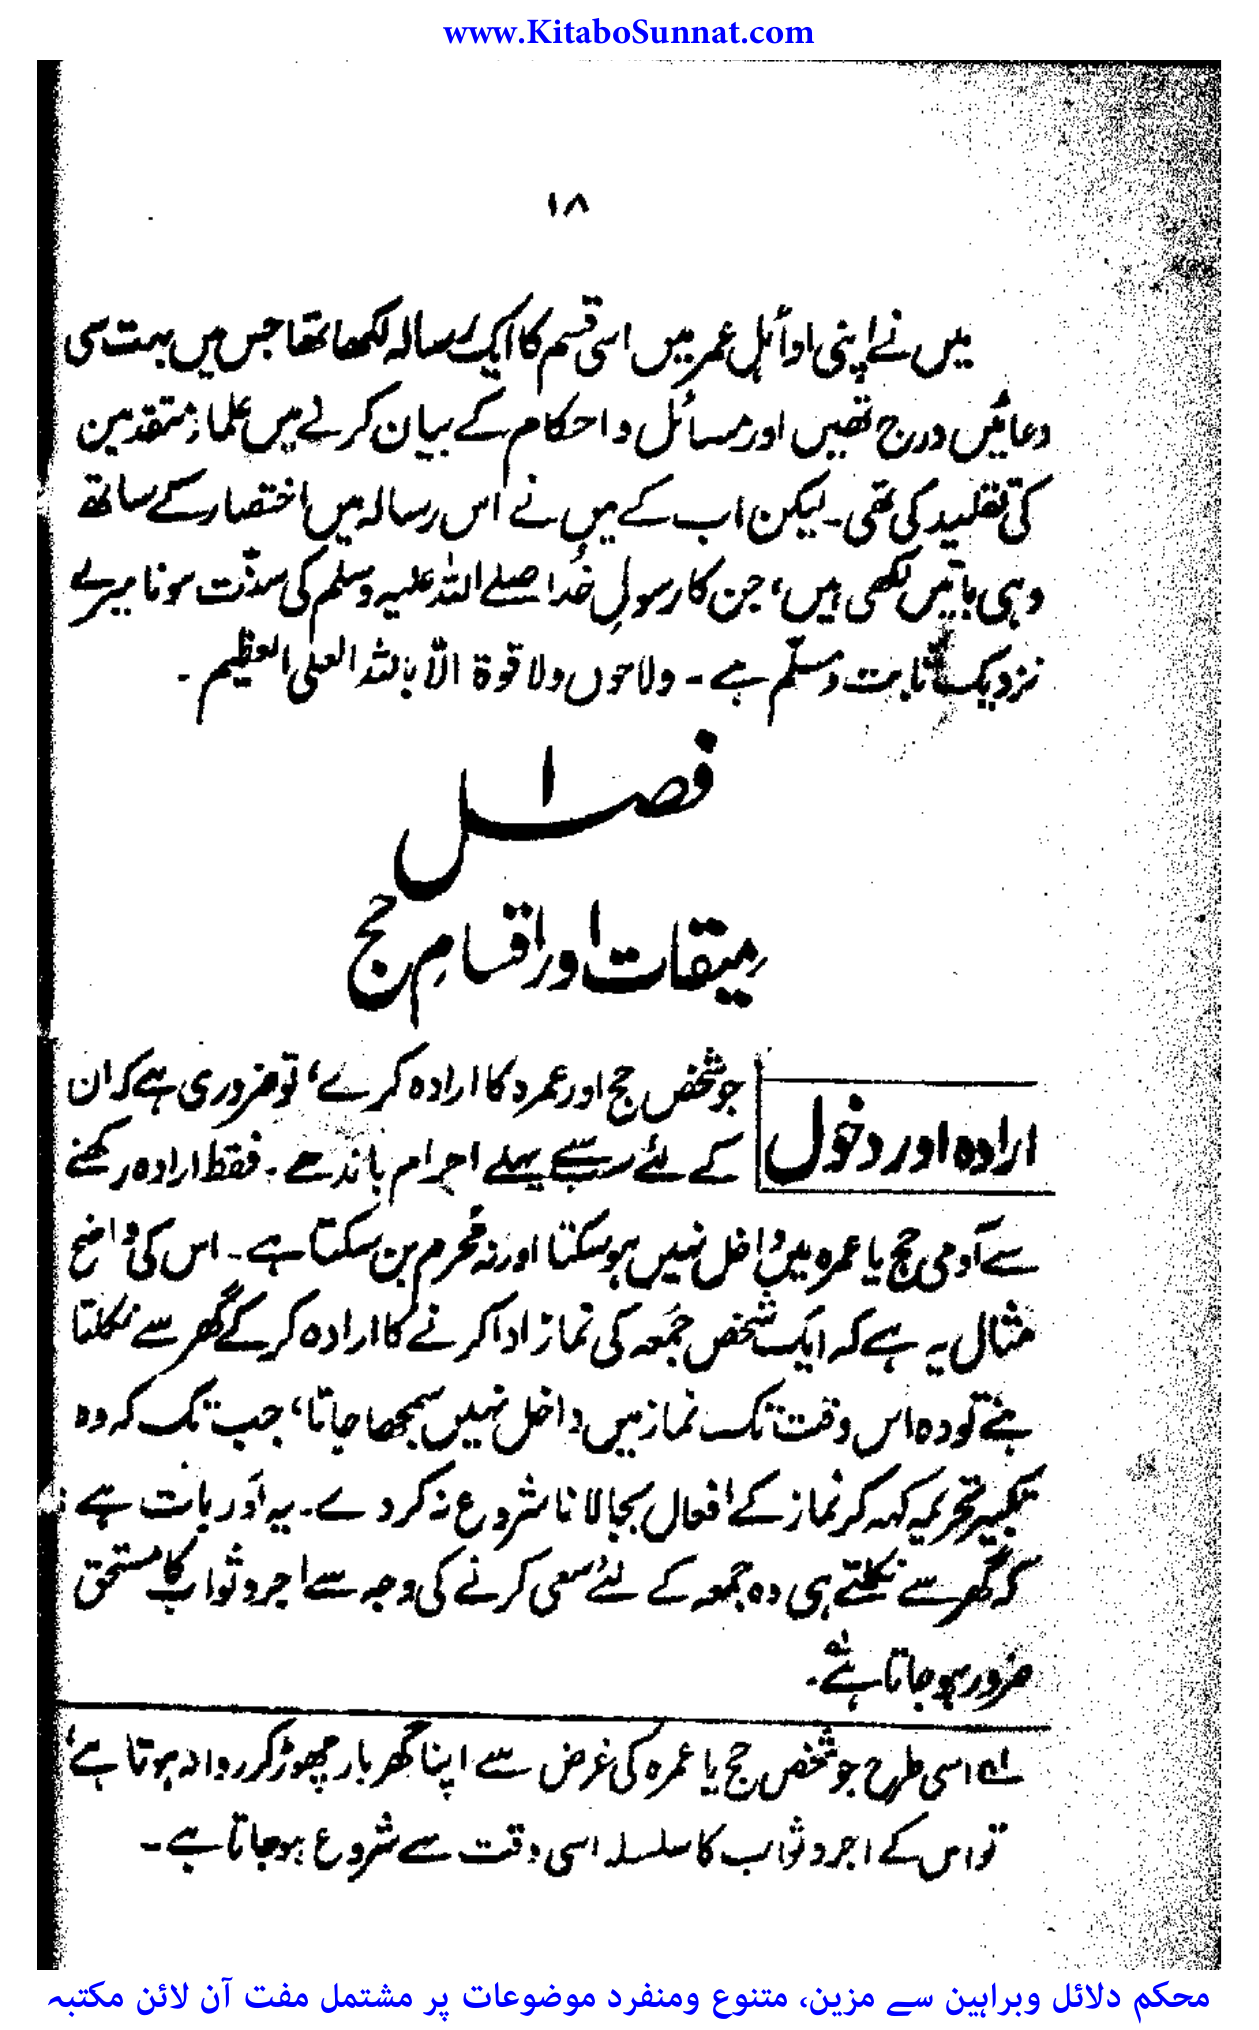 www.KitaboSunnat.com
۱۸
میں نے اپنی اوائل عمر میں اسی قسم کا ایک رسالہ لکھا تھا جس میں بہت سی
دعائیں درج تھیں اور مسائل و احکام کے بیان کرنے میں علماءِ متقدمین
کی تقلید کی تھی۔ لیکن اب کے میں نے اس رسالہ میں اختصار کے ساتھ
وہی باتیں لکھی ہیں، جن کا رسولِ خُدا صلے اللہ علیہ وسلم کی سنّت ہونا میرے
نزدیک ثابت و مسلّم ہے۔ ولا حول ولا قوة الّا باللہ العلی العظیم۔
فصل
میقات اور اقسامِ حج
ارادہ اور دخول
جو شخص حج اور عمرہ کا ارادہ کرے، تو ضروری ہے کہ ان
کے لئے سب سے پہلے احرام باندھے۔ فقط ارادہ رکھنے
سے آدمی حج یا عمرہ میں داخل نہیں ہو سکتا اور نہ مُحرم بن سکتا ہے۔ اس کی واضح
مثال یہ ہے کہ ایک شخص جُمعہ کی نماز ادا کرنے کا ارادہ کر کے گھر سے نکلتا
ہے تو وہ اس وقت تک نماز میں داخل نہیں سمجھا جاتا، جب تک کہ وہ
تکبیر تحریمہ کہہ کر نماز کے افعال بجا لانا شروع نہ کر دے۔ یہ اَور بات ہے
کہ گھر سے نکلتے ہی وہ جمعہ کے لئے سعی کرنے کی وجہ سے اجر و ثواب کا مستحق
ضرور ہو جاتا ہے۔
لہ اسی طرح جو شخص حج یا عمرہ کی غرض سے اپنا گھر بار چھوڑ کر روانہ ہوتا ہے،
تو اس کے اجر و ثواب کا سلسلہ اسی وقت سے شروع ہو جاتا ہے۔
محکم دلائل وبراہین سے مزین، متنوع ومنفرد موضوعات پر مشتمل مفت آن لائن مکتبہ